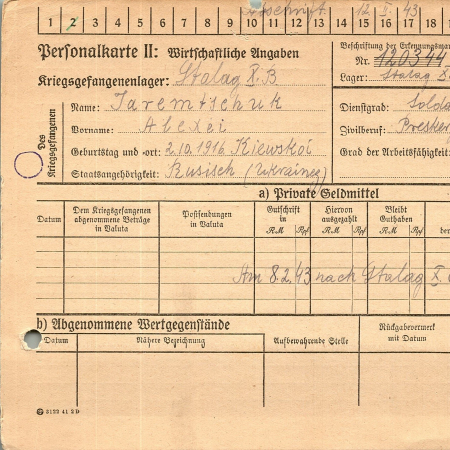 12. I. 43
1 2 3 4 5 6 7 8 9 10 11 12 13 14 15 16 17 18
Personalkarte II: Wirtschaftliche Angaben
Beschriftung der Erkennungsmar
Nr. 120344
Kriegsgefangenenlager: Stalag X B
Lager: Stalag X
Des Kriegsgefangenen
Name: Jaremtschuk
Dienstgrad: Solda
Vorname: Alexei
Zivilberuf:
Geburtstag und -ort: 2.10.1916 Kiewskoi
Grad der Arbeitsfähigkeit:
Staatsangehörigkeit: Rusisch (Ukrainez)
a) Private Geldmittel
Datum
Dem Kriegsgefangenen abgenommene Beträge in Valuta
Postsendungen in Valuta
Gutschrift in
RM Rpf
Hiervon ausgezahlt
RM Rpf
Bleibt Guthaben
RM Rpf
der
Am 8.2.43 nach Stalag X
b) Abgenommene Wertgegenstände
Datum
Nähere Bezeichnung
Aufbewahrende Stelle
Rückgabevermerk mit Datum
3122 41 2 D